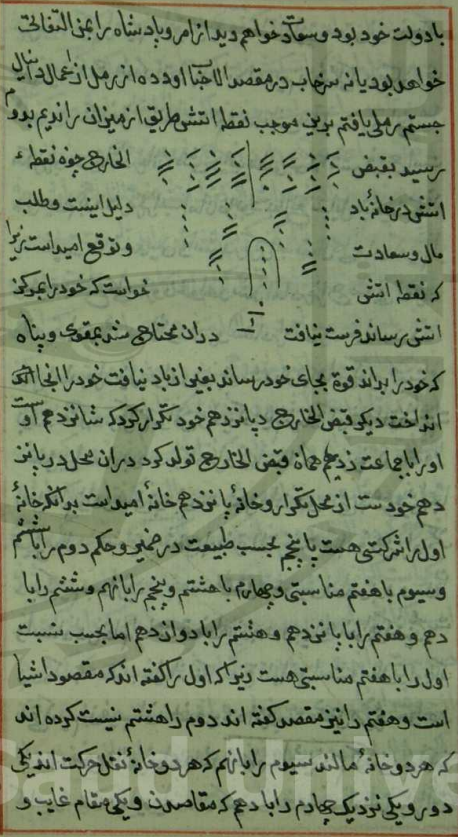 با دولت خود بود و سعادت خواهم دید از امر و پادشاه را بمن التفاتی
خواهد بود یا نه در مقصد از رمل از عمال دانیال
جستم رملی یافتم برین موجب نقطه اتشی طریق از میزان راندیم بدوم
رسید بقبض الخارج چونه نقطهء
اتشی در خانهٔ باد دلیل اینست و طلب
مال و سعادت و توقع امید است زیرا
که نقطه اتشی خواست که خود را بمرکز
اتشی رساند فرست نیافت دران محتاج شد بمقوی و پناه
که خود را براند قوة بجای خود رساند یعنی از باد نیافت خود را انجا
انداخت دیکر قبض الخارج د پانزدهم خود تکرار کرد که شانزدهم او است
او را با جماعت زدیم هماه قبض الخارج تولد کرد دران محل در پانز
دهم خود ست از محل تکرار و خانهٔ پانزدهم خانهٔ امید است بدانکه خانهٔ
اول را شرکتی هست با پنجم بحسب طبیعت در ضمیر و حکم دوم را با ششم
وسیوم با هفتم مناسبتی و چهارم با هشتم و پنجم را با نهم و ششم را با
دهم و هفتم را با پانزدهم و هشتم را با دوازدهم اما بحسب نسبت
اول را با هفتم مناسبتی هست زیرا که اول را کفته اند که مقصود اشیا
است و هفتم را نیز مقصد کفته اند دوم را هشتم نسبت کرده اند
که هر دو خانهٔ مالند سیوم را با نهم که هر دو خانهٔ نقل حرکت اند یکی
دور و یکی نزدیک چهارم را با دهم که مقاصدند و یکی مقام غایب و
Saud Unive